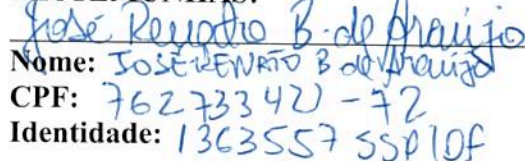 José Renato B. de Araújo
Nome: JOSÉ RENATO B de Araújo
CPF: 762733421-72
Identidade: 1363557 SSP/DF